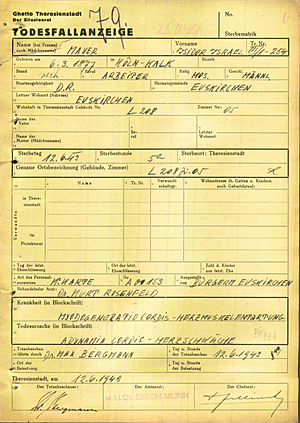 Ghetto Theresienstadt
Der Ältestenrat
79.
No.
TODESFALLANZEIGE
Sterbematrik
Name (bei Frauen auch Mädchenname) MAYER Vorname ISIDOR ISRAEL Tr. Nr. III/1-254
Geboren am 6.3.1877 in KÖLN-KALK Bezirk
Stand Beruf ARBEITER Relig. MOS. MÄNNL.
Staatszugehörigkeit D.R. Heimatsgemeinde EUSKIRCHEN
Letzter Wohnort (Adresse) EUSKIRCHEN
Wohnhaft in Theresienstadt Gebäude No. L 208 Zimmer No. 05
Name des Vaters Beruf Letzter Wohnort
Name der Mutter (Mädchenname)
Sterbetag 12.6.43 Sterbestunde 5 Sterbeort: Theresienstadt
Genaue Ortsbezeichnung (Gebäude, Zimmer) L 208 05
Name Tr. Nr. Verwandtschaftsgr. Wohnadresse (b. Gatten u. Kindern auch Geburtsdaten)
In Theresienstadt
im Protektorat
Tag der letzt. Eheschliessung Ort der letzt. Eheschliessung Zahl d. Kinder aus letzt. Ehe
Art des Personalausweises K. KARTE No. A 00153 Ausgestellt von BÜRGERM. EUSKIRCHEN
Behandelnder Arzt Dr. KURT ROSENFELD
Krankheit (in Blockschrift)
MYODEGENERATIO CORDIS - HERZMUSKELENTARTUNG
Todesursache (in Blockschrift)
ADYNAMIA CORDIS - HERZSCHWÄCHE
Totenbeschau führte durch Dr. MAX BERGMANN Tag u. Stunde der Totenbeschau 12.6.1943
Ort der Beisetzung Tag u. Stunde der Beisetzung
Theresienstadt, am 12.6.1943
Der Totenbeschauer: Der Amtsarzt: Der Chefarzt:
Bergmann